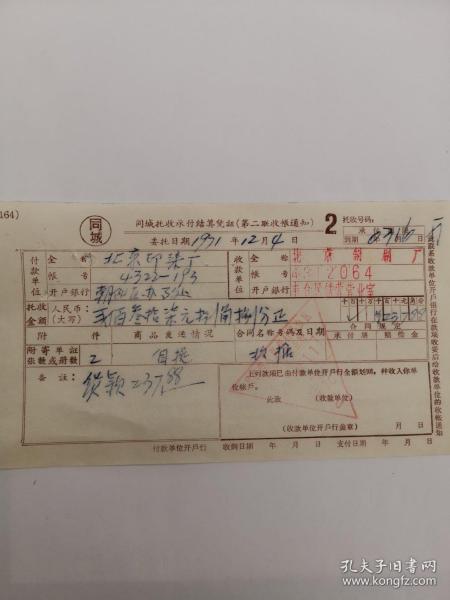 164)
同城
同城托收承付结算凭証(第二联收帐通知)
2
托收号码:
委托日期1971年12月4日
承付
到期
付款单位
全称
北京印染厂
帐号
4323-193
开户银行
收款单位
全称
帐号
4312064
开户银行
托收金额
人民币:
(大写)
千百十万千百十元角分
附件
商品发运情况
合同名称号码及日期
合同规定
承付期
赔偿金
附寄单证张数或册数
2
自提
备註:
货款237.88
上列款项已由付款单位开户行全额划回,并收入你单位帐户。
此致
(收款单位)
(收款单位开户行盖章)
月日
付款单位开户行
收到日期 年 月 日
支付日期 年 月 日
此联系收款单位开户银行在款项收妥后给收款单位的收帐通知
孔夫子旧书网
www.kongfz.com